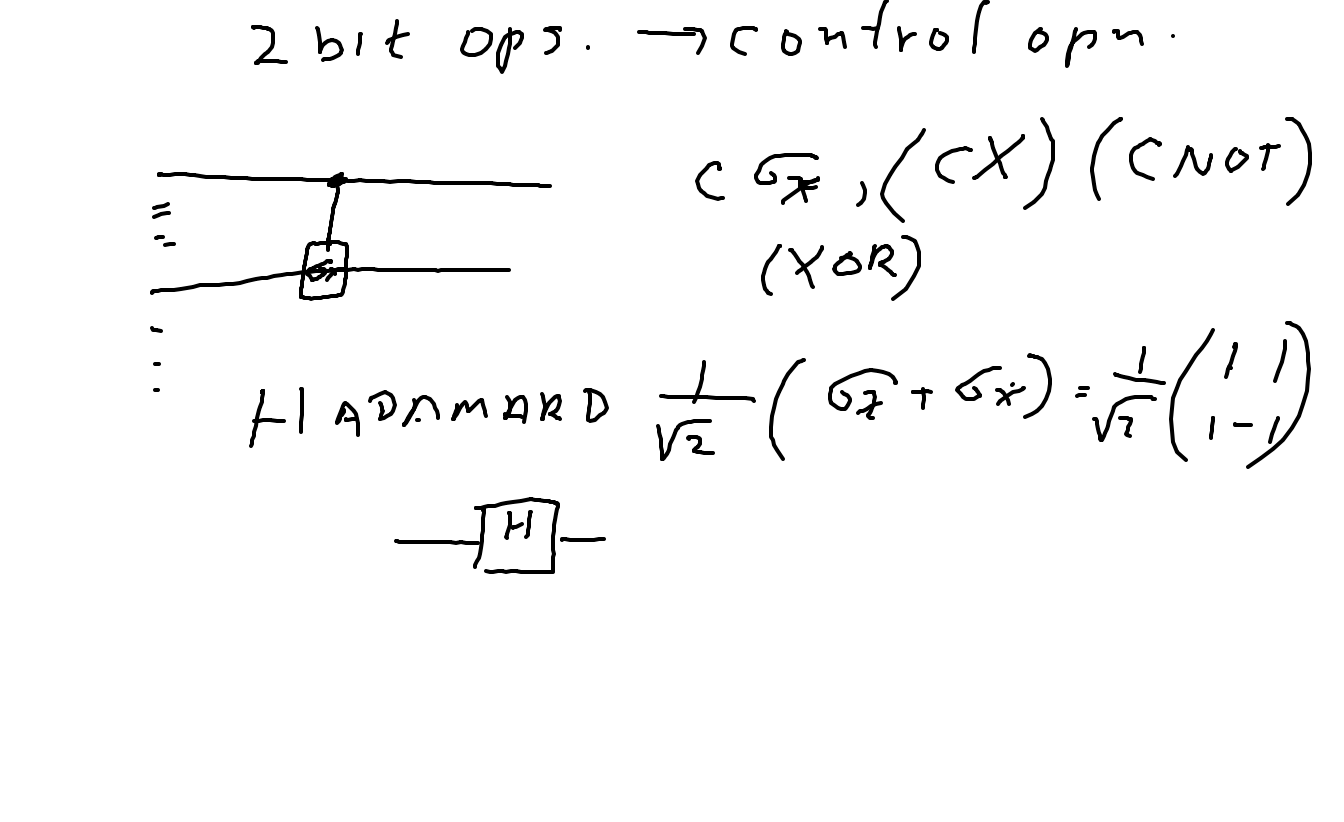 2 bit ops. → control opn.
C σx, (CX) (CNOT)
(XOR)
HADAMARD 1/√2 (σz + σx) = 1/√2 (1 1 1 -1)
H